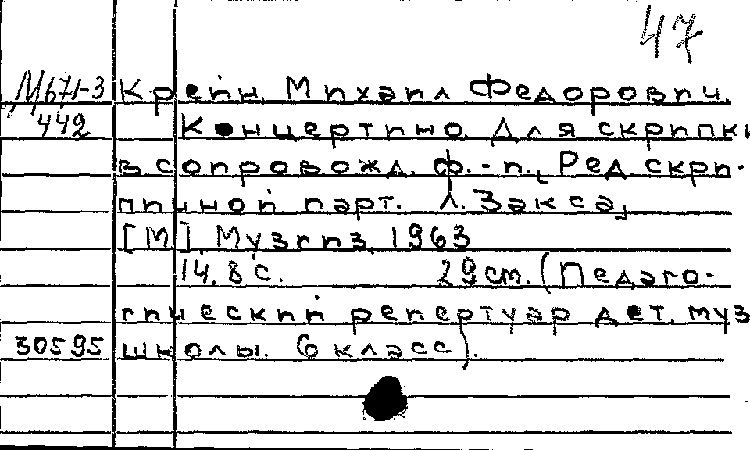 47
М671-3 Крейн, Михаил Федорович.
442 Концертино для скрипки
в сопровожд. ф.-п., Ред. скри-
пичной парт. Л. Закса,
[М] Музгиз, 1963
14, 8 с. 29 см. (Педаго-
гический репертуар дет. муз
30595 школы. 6 класс).